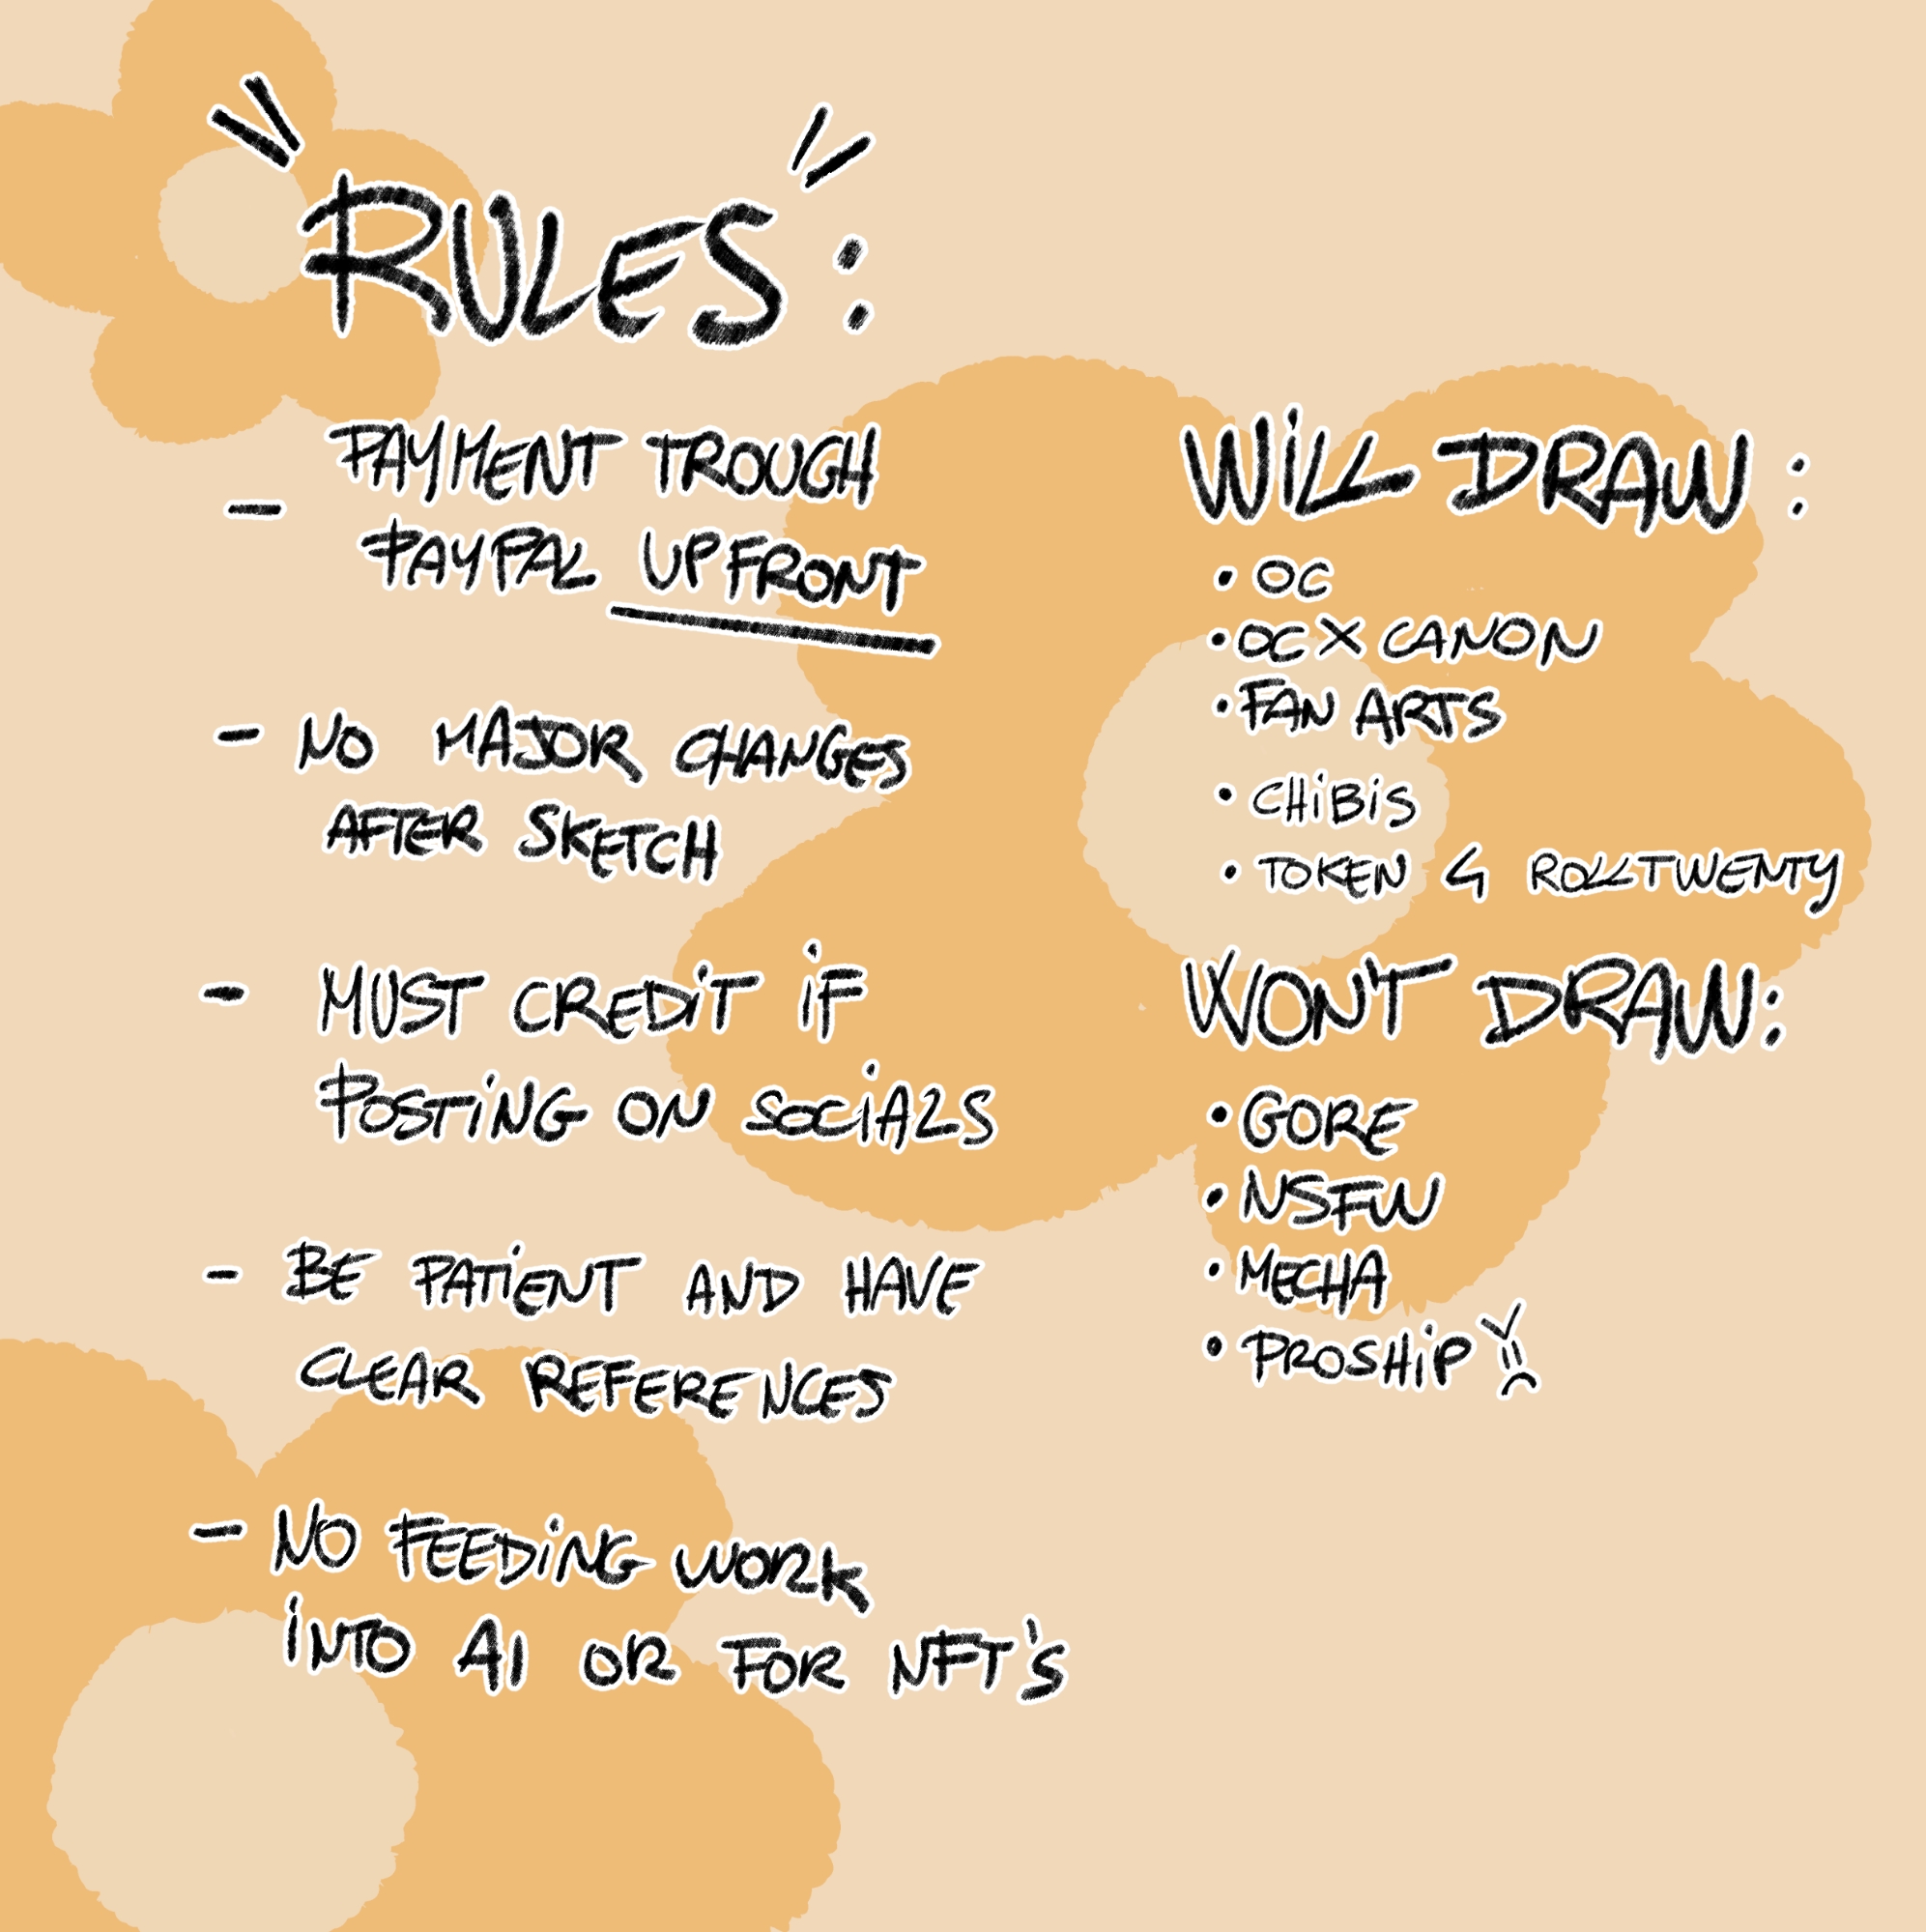 RULES:
PAYMENT TROUGH
- PAYPAL UPFRONT
- NO MAJOR CHANGES
AFTER SKETCH
- MUST CREDIT IF
POSTING ON SOCIALS
- BE PATIENT AND HAVE
CLEAR REFERENCES
- NO FEEDING WORK
INTO AI OR FOR NFT'S
WILL DRAW:
• OC
• OC X CANON
• FAN ARTS
• CHIBIS
• TOKEN 4 ROLLTWENTY
WON'T DRAW:
• GORE
• NSFW
• MECHA
• PROSHIP